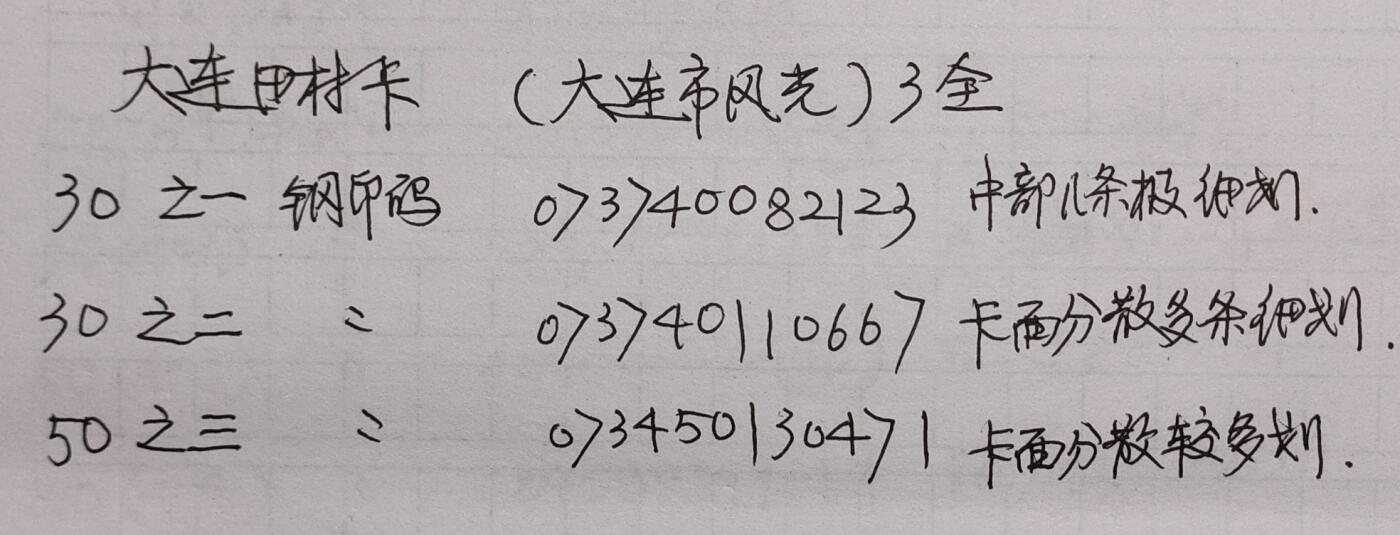 大连田村卡 (大连市风光)3全
30 之一 钢印码 073740082123 中部几条极细划.
30 之二 〃 073740110667 卡面分散多条细划.
50 之三 〃 073450130471 卡面分散较多划.